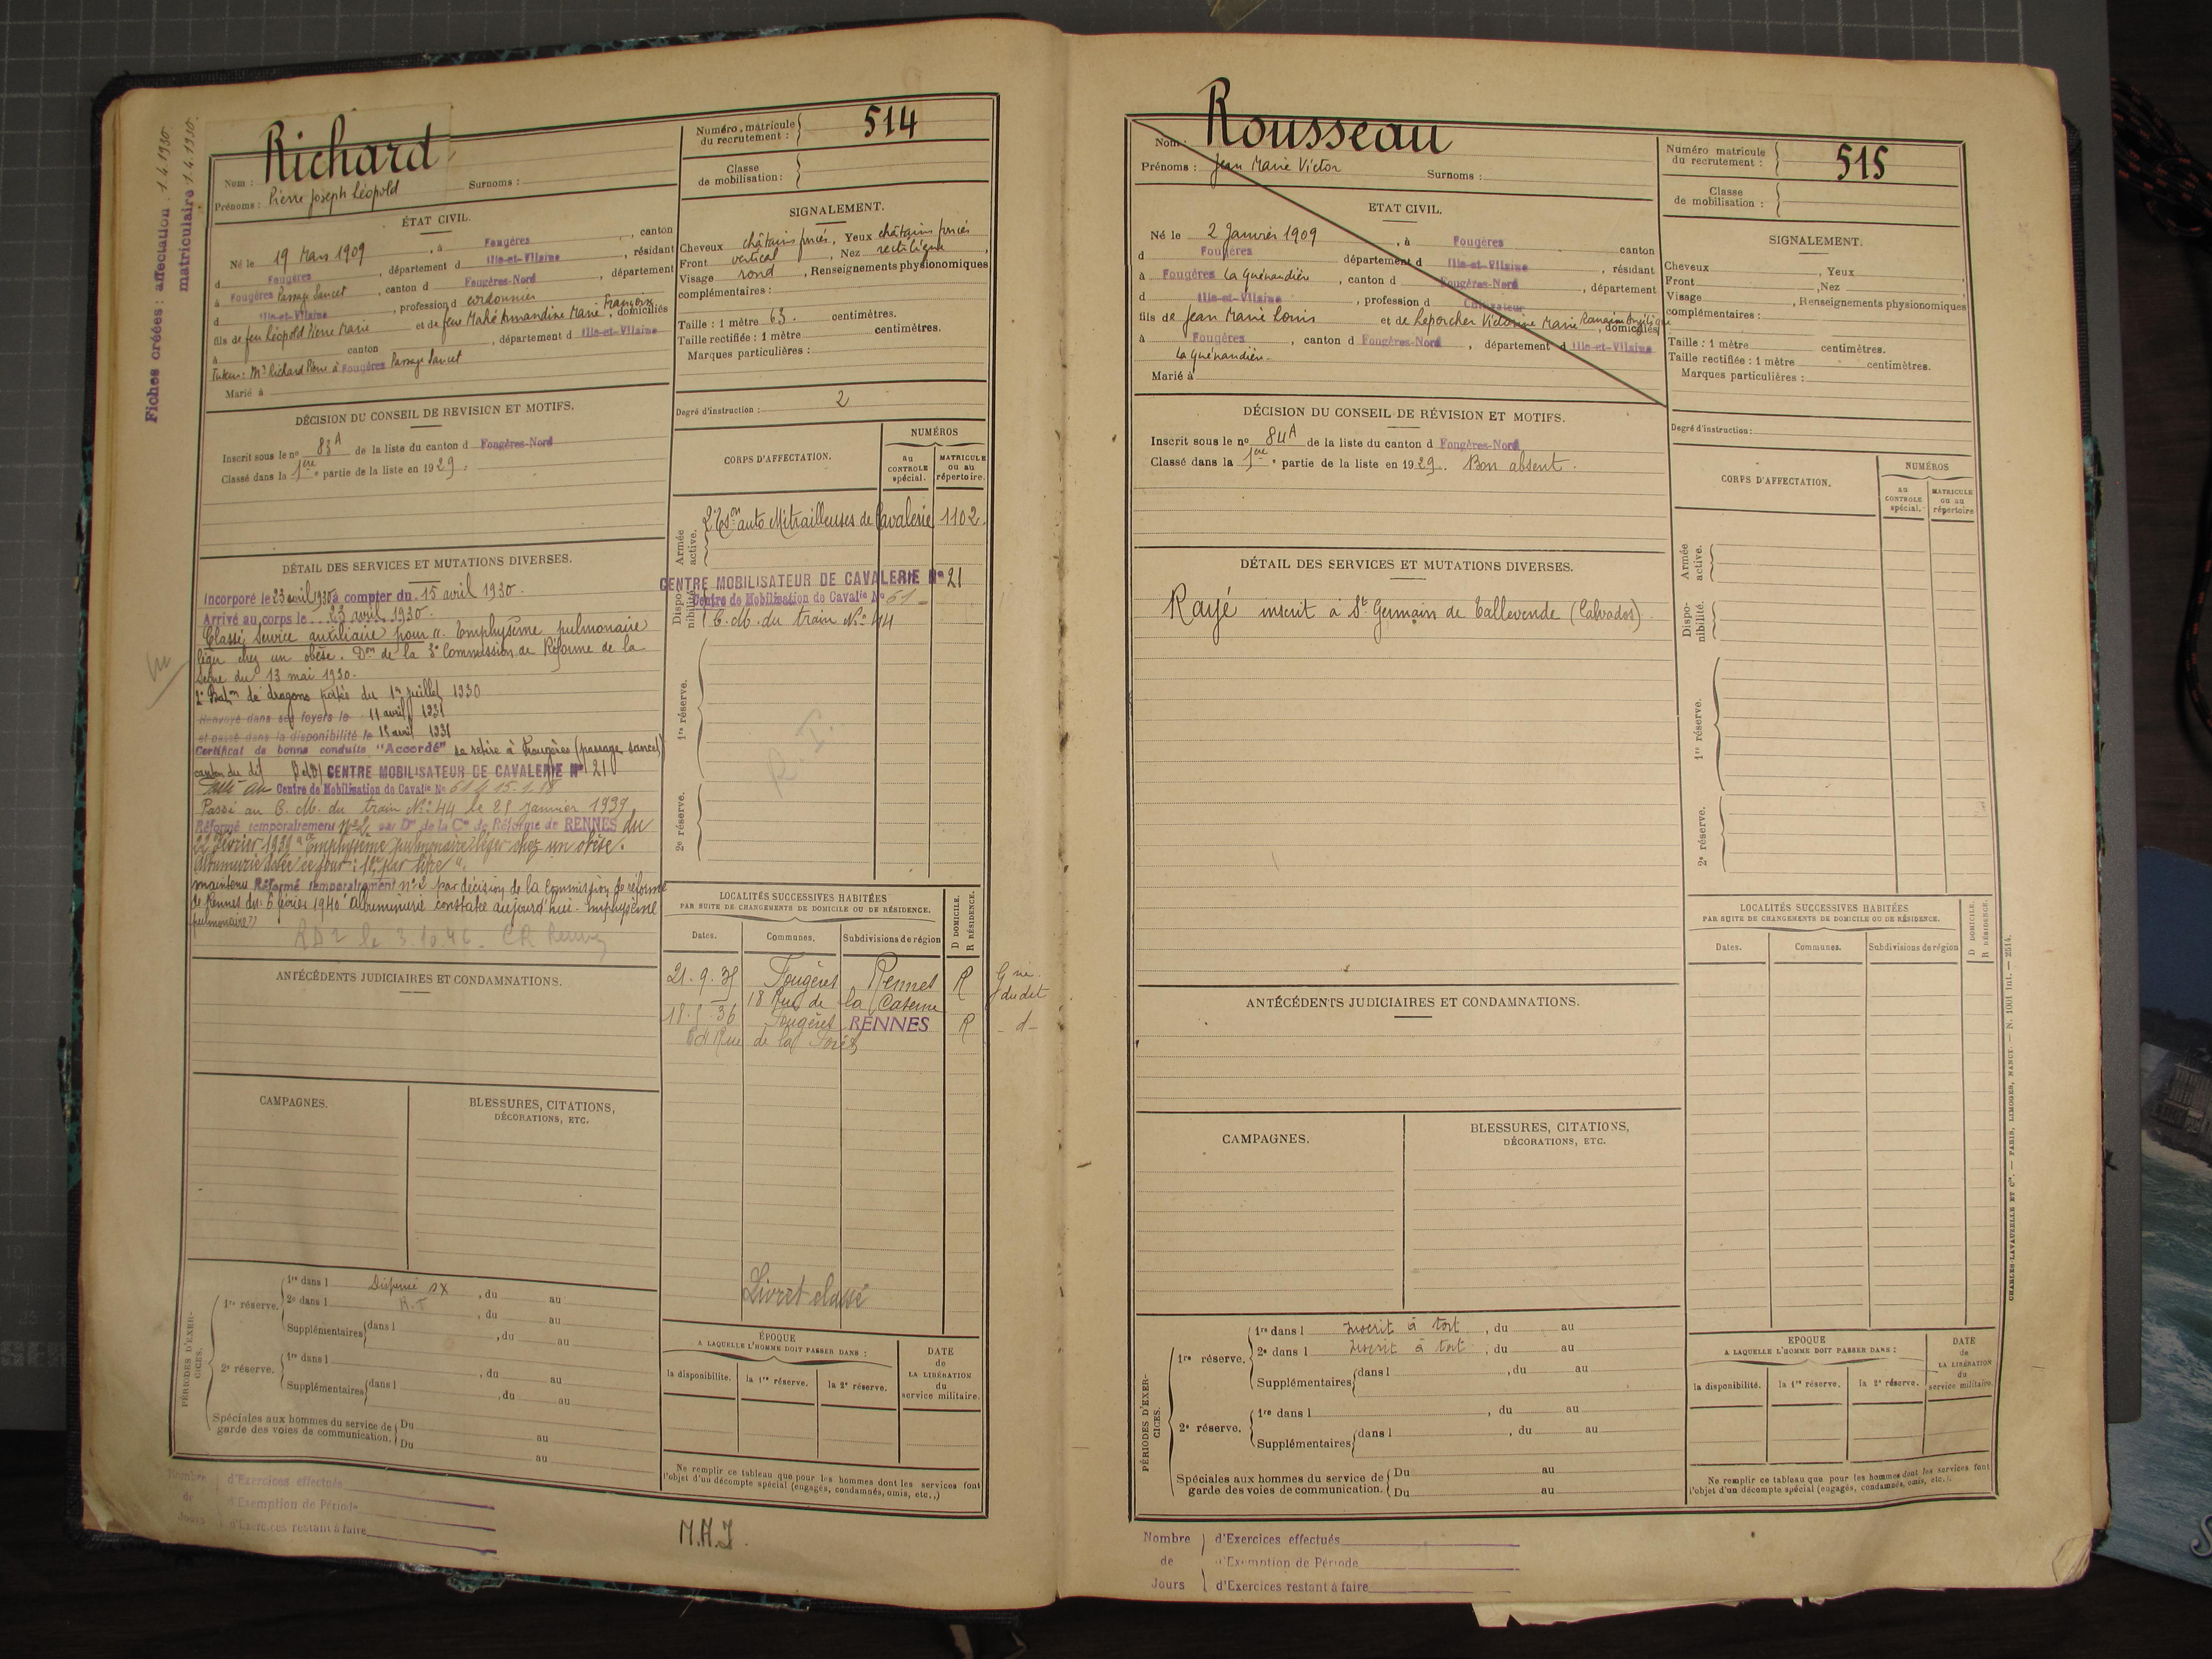 Fiches créées : affectation : 1.4.1930
matriculaire 1.4.1930.
Richard
Nom :
Prénoms : Pierre Joseph Léopold Surnoms :
Numéro matricule du recrutement : 514
Classe de mobilisation :
ÉTAT CIVIL.
Né le 19 Mars 1909, à Fougères, canton
d Fougères, département d Ille-et-Vilaine, résidant
à Fougères Passage Sancet, canton d Fougères-Nord, département
d Ille-et-Vilaine, profession d cordonnier
fils de feu Léopold Pierre Marie et de feue Mahé Amandine Marie Françoise, domiciliés
à canton, département d Ille-et-Vilaine
Tuteur : Mr Richard Pierre à Fougères Passage Sancet
Marié à
SIGNALEMENT.
Cheveux châtains foncés, Yeux châtains foncés
Front vertical, Nez rectiligne,
Visage rond, Renseignements physionomiques
complémentaires :
Taille : 1 mètre 63. centimètres.
Taille rectifiée : 1 mètre centimètres.
Marques particulières :
Degré d'instruction : 2
DÉCISION DU CONSEIL DE RÉVISION ET MOTIFS.
Inscrit sous le no 83 A de la liste du canton d Fougères-Nord
Classé dans la 1ère partie de la liste en 1929.
CORPS D'AFFECTATION.
NUMÉROS
au CONTROLE spécial.
MATRICULE ou au répertoire.
Armée active.
2e Eson auto Mitrailleuses de Cavalerie 1102.
Disponibilité.
CENTRE MOBILISATEUR DE CAVALERIE No 21
Centre de Mobilisation de Cavalie No 61
C. M. du train No 44
1re réserve.
R. T.
2e réserve.
DÉTAIL DES SERVICES ET MUTATIONS DIVERSES.
Incorporé le 23 avril 1930 à compter du 15 avril 1930.
Arrivé au corps le 23 avril 1930.
Classé Service auxiliaire pour "Emphysème pulmonaire
léger chez un obèse. Don de la 3e Commission de Réforme de la
Seine du 13 mai 1930.
2e Baton de dragons portés du 1er juillet 1930
Renvoyé dans ses foyers le 11 avril 1931
et passé dans la disponibilité le 15 avril 1931
Certificat de bonne conduite "Accordé" se retire à Fougères (passage sancet)
canton du dit CENTRE MOBILISATEUR DE CAVALERIE No 21
au Centre de Mobilisation de Cavalie No 61 le 15.1.38
Passé au C. M. du train No 44 le 25 Janvier 1939
Réformé temporairement No 2 par Don de la Con de Réforme de RENNES du
22 Février 1939 "Emphysème pulmonaire léger chez un obèse.
Albuminurie dosée ce jour : 1gr par litre".
maintenu Réformé temporairement no 2 par décision de la Commission de réforme
de Rennes du 6 février 1940 "Albuminurie constatée aujourd'hui - Emphysème
pulmonaire"
RD2 le 3.10.46 - CR Rennes
ANTÉCÉDENTS JUDICIAIRES ET CONDAMNATIONS.
LOCALITÉS SUCCESSIVES HABITÉES
PAR SUITE DE CHANGEMENTS DE DOMICILE OU DE RÉSIDENCE.
D DOMICILE.
R RÉSIDENCE.
Dates. Communes. Subdivisions de région
21.9.35 Fougères Rennes R
18 Rue de la Caserne
18.5.36 Fougères RENNES R - d -
Rue de la Forêt
Gie
du dit
CAMPAGNES.
BLESSURES, CITATIONS,
DÉCORATIONS, ETC.
Livret classé
PÉRIODES D'EXERCICES.
1re réserve. 1re dans l Dispensé DX, du au
2e dans l R.T, du au
Supplémentaires dans l, du au
2e réserve. 1re dans l, du au
Supplémentaires dans l, du au
Spéciales aux hommes du service de garde des voies de communication. Du au
Du au
ÉPOQUE
A LAQUELLE L'HOMME DOIT PASSER DANS :
la disponibilité. la 1re réserve. la 2e réserve.
DATE de LA LIBÉRATION du service militaire.
Ne remplir ce tableau que pour les hommes dont les services font
l'objet d'un décompte spécial (engagés, condamnés, omis, etc.,)
Nombre de Jours
d'Exercices effectués
d'Exemption de Période
d'Exercices restant à faire
M.A.J.
Rousseau
Nom :
Prénoms : Jean Marie Victor Surnoms :
Numéro matricule du recrutement : 515
Classe de mobilisation :
ETAT CIVIL.
Né le 2 Janvier 1909, à Fougères canton
d Fougères département d Ille-et-Vilaine, résidant
à Fougères La Guénandière, canton d Fougères-Nord, département
d Ille-et-Vilaine, profession d Cultivateur
fils de Jean Marie Louis et de Leporcher Victorine Marie Romaine Angélique, domiciliés
à Fougères, canton d Fougères-Nord, département d Ille-et-Vilaine
La Guénandière
Marié à
SIGNALEMENT.
Cheveux, Yeux
Front, Nez
Visage, Renseignements physionomiques
complémentaires :
Taille : 1 mètre centimètres.
Taille rectifiée : 1 mètre centimètres.
Marques particulières :
Degré d'instruction :
DÉCISION DU CONSEIL DE RÉVISION ET MOTIFS.
Inscrit sous le no 84 A de la liste du canton d Fougères-Nord
Classé dans la 1ère partie de la liste en 1929. Bon absent.
CORPS D'AFFECTATION.
NUMÉROS
au CONTROLE spécial.
MATRICULE ou au répertoire
Armée active.
Disponibilité.
1re réserve.
2e réserve.
DÉTAIL DES SERVICES ET MUTATIONS DIVERSES.
Rayé inscrit à St Germain de Tallevende (Calvados).
ANTÉCÉDENTS JUDICIAIRES ET CONDAMNATIONS.
LOCALITÉS SUCCESSIVES HABITÉES
PAR SUITE DE CHANGEMENTS DE DOMICILE OU DE RÉSIDENCE.
D DOMICILE.
R RÉSIDENCE.
Dates. Communes. Subdivisions de région
CAMPAGNES.
BLESSURES, CITATIONS,
DÉCORATIONS, ETC.
PÉRIODES D'EXERCICES.
1re réserve. 1re dans l Inscrit à tort, du au
2e dans l Inscrit à tort, du au
Supplémentaires dans l, du au
2e réserve. 1re dans l, du au
Supplémentaires dans l, du au
Spéciales aux hommes du service de garde des voies de communication. Du au
Du au
EPOQUE
A LAQUELLE L'HOMME DOIT PASSER DANS :
la disponibilité. la 1re réserve. la 2e réserve.
DATE de LA LIBÉRATION du service militaire.
Ne remplir ce tableau que pour les hommes dont les services font
l'objet d'un décompte spécial (engagés, condamnés, omis, etc.).
Nombre de Jours
d'Exercices effectués
d'Exemption de Période
d'Exercices restant à faire
CHARLES-LAVAUZELLE ET Cie. — PARIS, LIMOGES, NANCY. — N. 1001 int. — 2514.